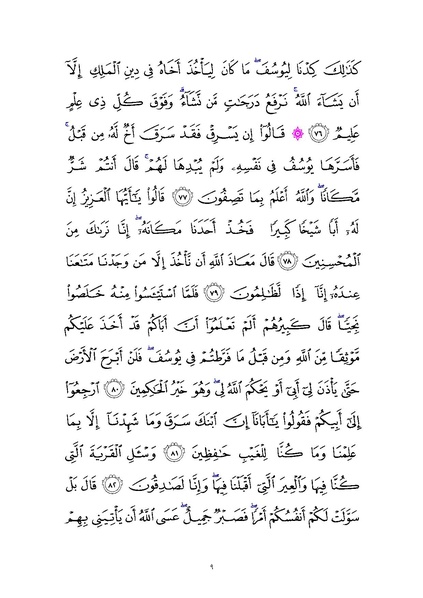 كَذَٰلِكَ كِدْنَا لِيُوسُفَ ۖ مَا كَانَ لِيَأْخُذَ أَخَاهُ فِي دِينِ الْمَلِكِ إِلَّا
أَن يَشَاءَ اللَّهُ ۚ نَرْفَعُ دَرَجَاتٍ مَّن نَّشَاءُ ۗ وَفَوْقَ كُلِّ ذِي عِلْمٍ
عَلِيمٌ ﴿٧٦﴾ ۞ قَالُوا إِن يَسْرِقْ فَقَدْ سَرَقَ أَخٌ لَّهُ مِن قَبْلُ ۚ
فَأَسَرَّهَا يُوسُفُ فِي نَفْسِهِ وَلَمْ يُبْدِهَا لَهُمْ ۚ قَالَ أَنتُمْ شَرٌّ
مَّكَانًا ۖ وَاللَّهُ أَعْلَمُ بِمَا تَصِفُونَ ﴿٧٧﴾ قَالُوا يَا أَيُّهَا الْعَزِيزُ إِنَّ
لَهُ أَبًا شَيْخًا كَبِيرًا فَخُذْ أَحَدَنَا مَكَانَهُ ۖ إِنَّا نَرَاكَ مِنَ
الْمُحْسِنِينَ ﴿٧٨﴾ قَالَ مَعَاذَ اللَّهِ أَن نَّأْخُذَ إِلَّا مَن وَجَدْنَا مَتَاعَنَا
عِندَهُ إِنَّا إِذًا لَّظَالِمُونَ ﴿٧٩﴾ فَلَمَّا اسْتَيْأَسُوا مِنْهُ خَلَصُوا
نَجِيًّا ۖ قَالَ كَبِيرُهُمْ أَلَمْ تَعْلَمُوا أَنَّ أَبَاكُمْ قَدْ أَخَذَ عَلَيْكُم
مَّوْثِقًا مِّنَ اللَّهِ وَمِن قَبْلُ مَا فَرَّطتُمْ فِي يُوسُفَ ۖ فَلَنْ أَبْرَحَ الْأَرْضَ
حَتَّىٰ يَأْذَنَ لِي أَبِي أَوْ يَحْكُمَ اللَّهُ لِي ۖ وَهُوَ خَيْرُ الْحَاكِمِينَ ﴿٨٠﴾ ارْجِعُوا
إِلَىٰ أَبِيكُمْ فَقُولُوا يَا أَبَانَا إِنَّ ابْنَكَ سَرَقَ وَمَا شَهِدْنَا إِلَّا بِمَا
عَلِمْنَا وَمَا كُنَّا لِلْغَيْبِ حَافِظِينَ ﴿٨١﴾ وَسْئَلِ الْقَرْيَةَ الَّتِي
كُنَّا فِيهَا وَالْعِيرَ الَّتِي أَقْبَلْنَا فِيهَا ۖ وَإِنَّا لَصَادِقُونَ ﴿٨٢﴾ قَالَ بَلْ
سَوَّلَتْ لَكُمْ أَنفُسُكُمْ أَمْرًا ۖ فَصَبْرٌ جَمِيلٌ ۖ عَسَى اللَّهُ أَن يَأْتِيَنِي بِهِمْ
٩